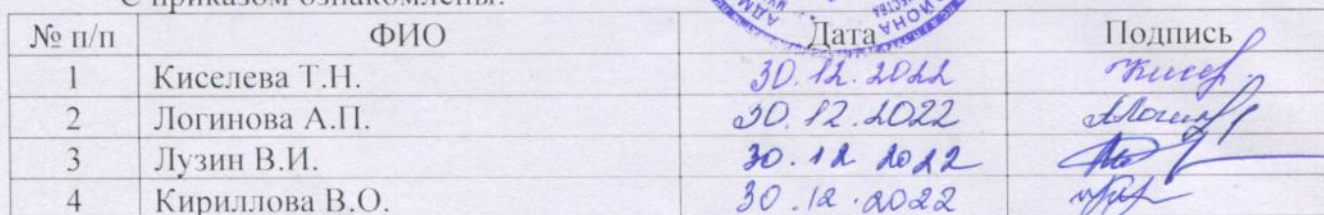 С приказом ознакомлены:
№ п/п ФИО Дата Подпись
1 Киселева Т.Н. 30.12.2022
2 Логинова А.П. 30.12.2022
3 Лузин В.И. 30.12 2022
4 Кириллова В.О. 30.12.2022